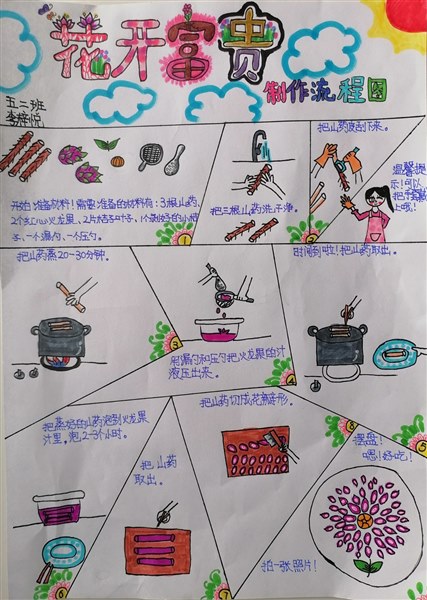 花开富贵
制作流程图
五二班
李梓悦
开始准备材料！需要准备的材料有：3根山药、
2个红心火龙果、2片桔子叶子、1个剥好的小桔
子、一个漏勺、一个压勺。
把三根山药洗干净。
1
把山药皮刮下来。
温馨提
示！可以
把手套戴
上哦！
2
把山药蒸20-30分钟。
3
用漏勺和压勺把火龙果的汁
液压出来。
4
时间到啦！把山药取出。
5
把蒸好的山药泡到火龙果
汁里。泡2-3个小时。
6
把山药
取出。
7
把山药切成花瓣形。
8
摆盘！
嗯！好吃！
拍一张照片！